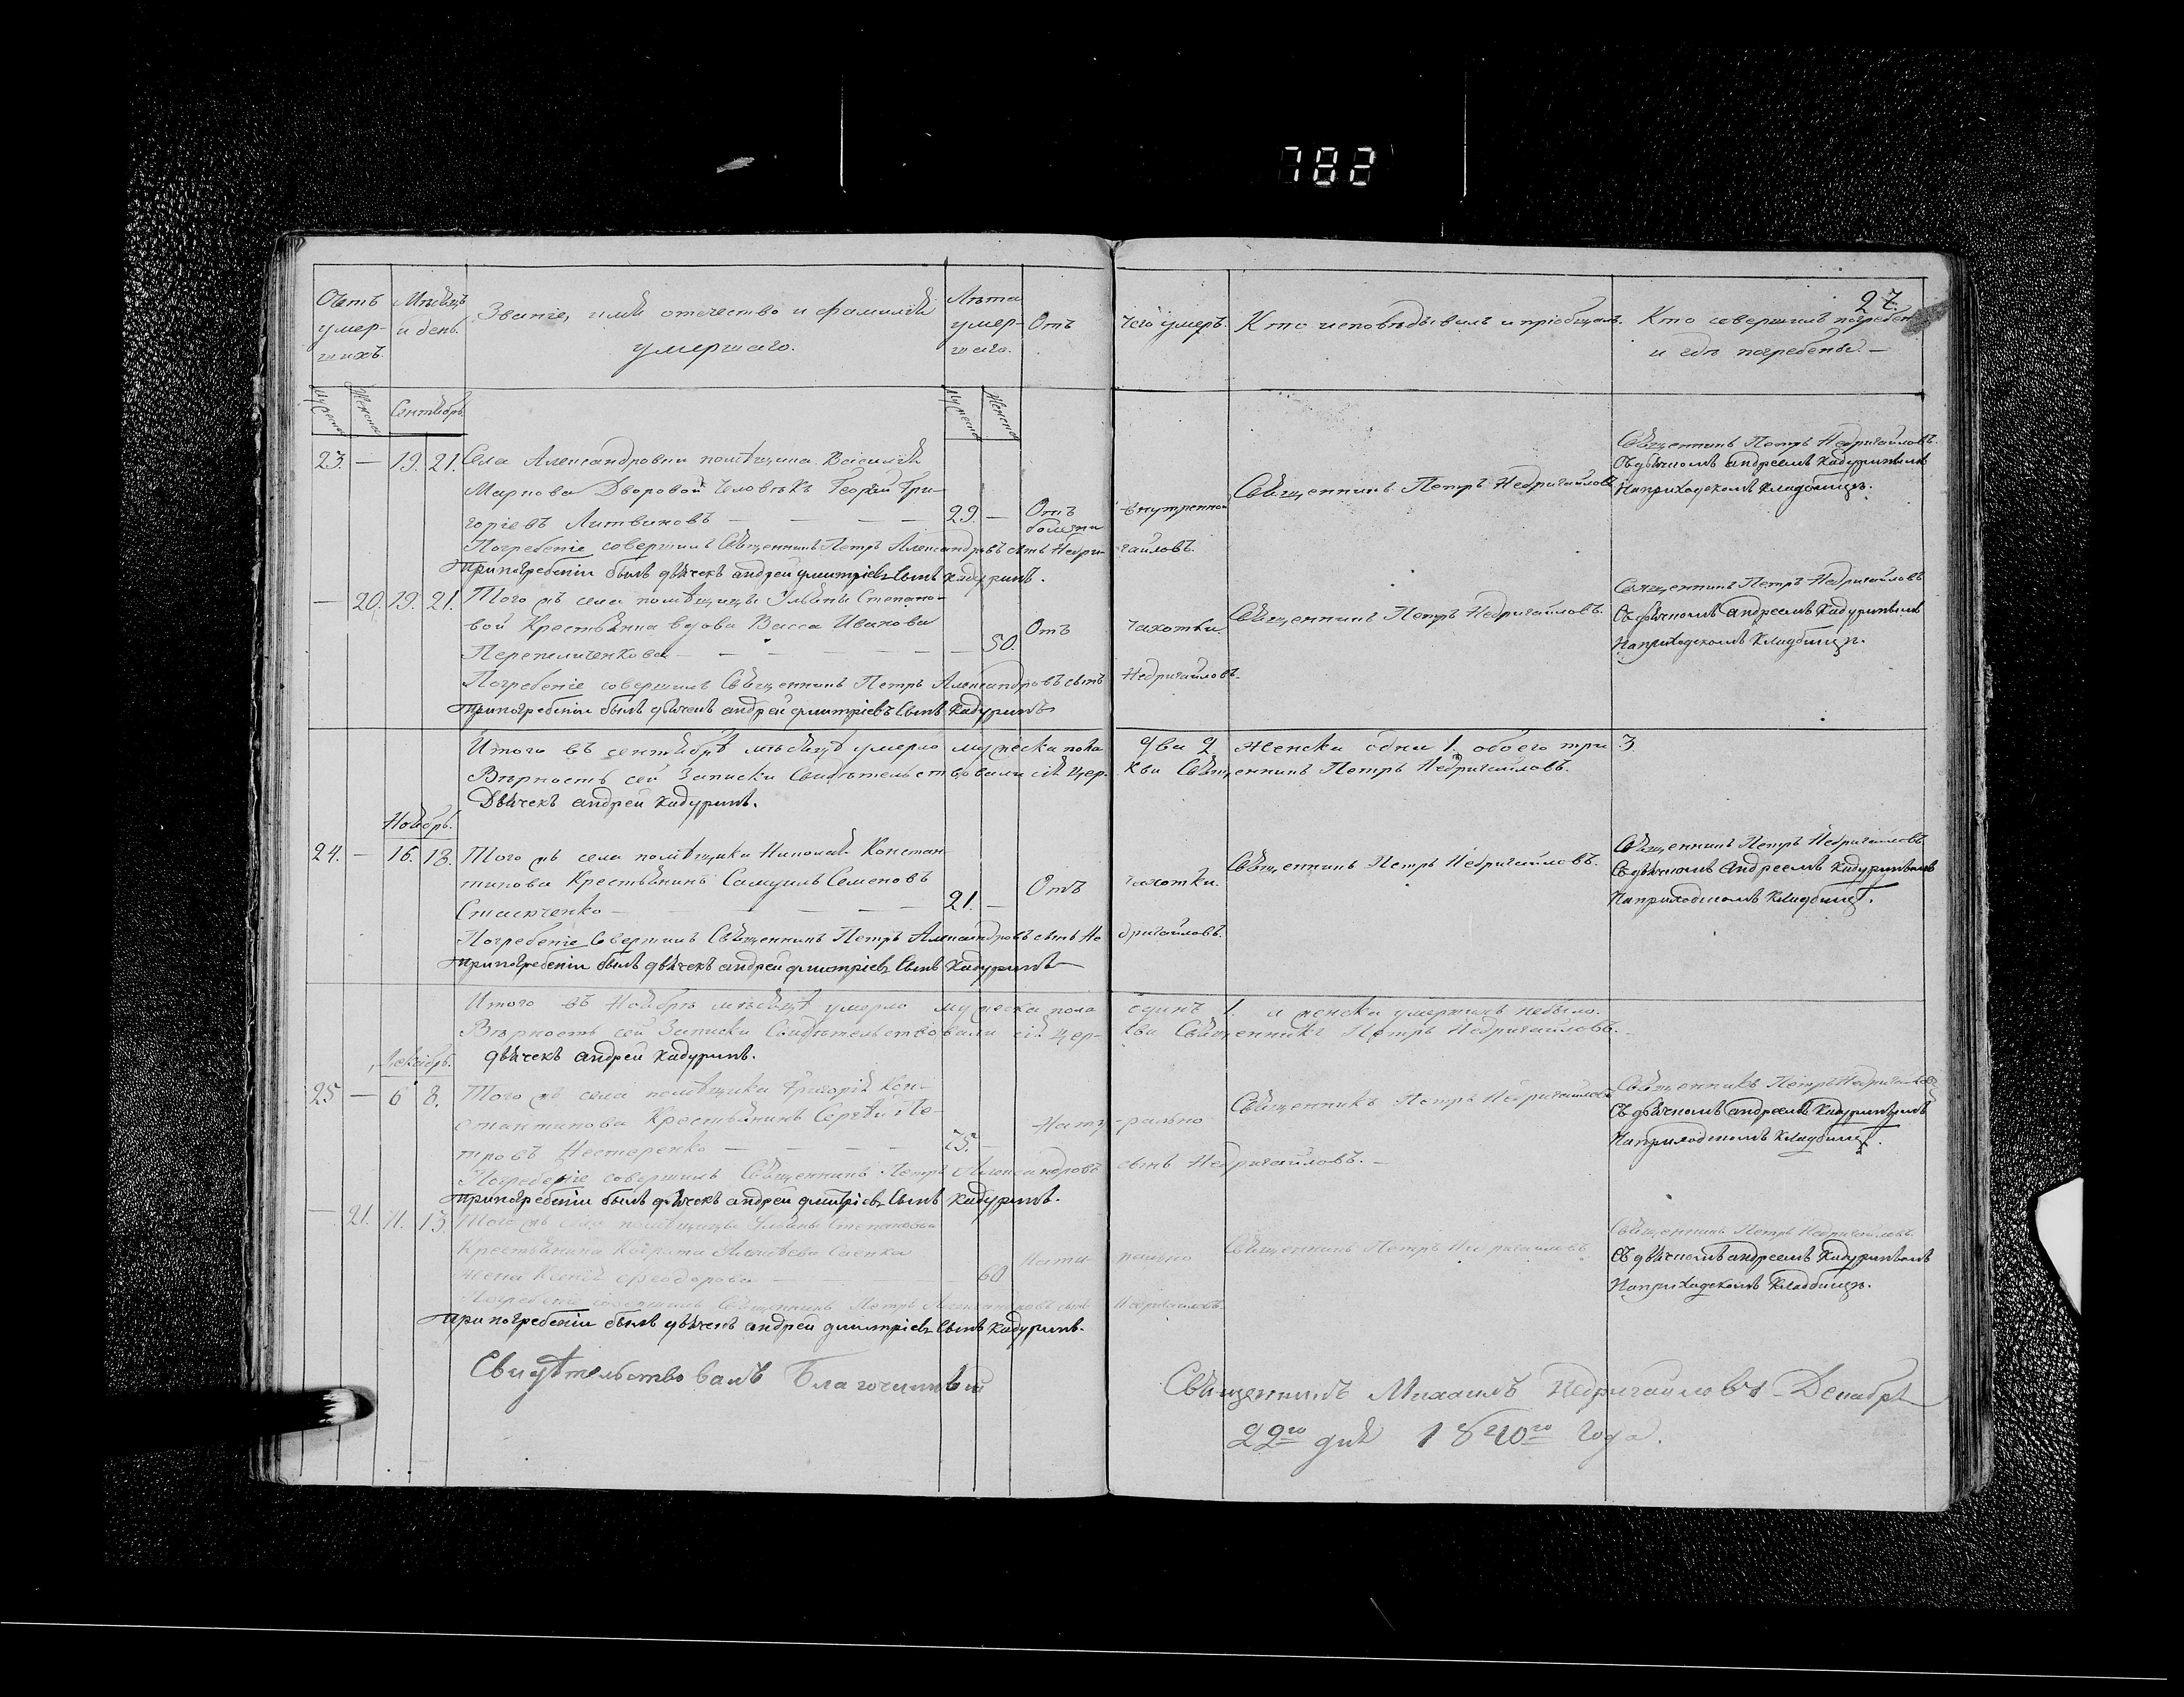 782
27.
Счетъ умер-
шихъ.
Мѣсяцъ
и день.
Званіе, имя отечество и фамилія
умершаго.
Лѣта
умер-
шаго.
Отъ чего умеръ.
Кто исповѣдывалъ и пріобщалъ.
Кто совершилъ погребен
и гдѣ погребены. —
Мужеска
Женска
Сентябрь
Мужеска
Женска
23. — 19. 21. Села Александровки помѣщика Василія
Маркова Дворовой человѣкъ Георгій Гри-
горіевъ Литвиновъ — — — — 29. — Отъ внутренной
болезни
Священникъ Петръ Недригайловъ
Священникъ Петръ Недригайловъ.
Съ дьячкомъ андреемъ Кадуринымъ
На приходскомъ кладбищѣ.
Погребеніе совершилъ Священникъ Петръ Александровъ сынъ Недри- гайловъ.
При погребеніи былъ дьячекъ андрей дмитріевъ Сынъ Кадуринъ.
— 20. 19. 21. Того жъ села помѣщицы Ульяны Степано-
вой Крестьянка вдова Васса Иванова
Перепеличенкова — — — — — 50. Отъ чахотки.
Священникъ Петръ Недригайловъ.
Священникъ Петръ Недригайловъ
Съ дьячкомъ андреемъ Кадуринымъ
На приходскомъ Кладбищѣ.
Погребеніе совершилъ Священникъ Петръ Александровъ сынъ Недригайловъ.
При погребеніи былъ дьячекъ андрей дмитріевъ Сынъ Кадуринъ
Итого въ сентябрѣ мѣсяцѣ умерло мужеска пола два 2 женска одна 1. обоего три 3
Вѣрность сей Записки Свидѣтельствовали сія цер- кви Священникъ Петръ Недригайловъ.
Дьячекъ андрей Кадуринъ.
Ноябрь.
24. — 16. 18. Того жъ села помѣщика Николая Констан-
тинова Крестьянинъ Самуилъ Семеновъ
— — — — 21. — Отъ чахотки.
Священникъ Петръ Недригайловъ.
Священникъ Петръ Недригайловъ
Съ дьячкомъ Андреемъ Кадуринымъ
На приходскомъ кладбищѣ.
Погребеніе Совершилъ Священникъ Петръ Александровъ сынъ Не дригайловъ.
При погребеніи былъ дьячекъ андрей дмитріевъ Сынъ Кадуринъ —
Итого въ Ноябрѣ мѣсяцѣ умерло мужеска пола одинъ 1. а женска умершихъ небыло.
Вѣрность сей Записки Свидѣтельствовали сія цер- кви Священникъ Петръ Недригайловъ.
дьячекъ андрей Кадуринъ.
Декабрь.
25 — 6 8. Того жъ села помѣщика Григорія Кон-
стантинова Крестьянинъ Сергѣй Пе-
тровъ Нестеренко — — — — 75. — Нату -рально
Священникъ Петръ Недригайловъ
Священникъ Петръ Недригайловъ
Съ дьячкомъ андреемъ Кадуринымъ
На приходскомъ Кладбищѣ.
Погребеніе совершилъ Священникъ Петръ Александровъ сынъ Недригайловъ. —
При погребеніи былъ дьячекъ андрей дмитріевъ Сынъ Кадуринъ.
— 21. 11. 13. Того жъ села помѣщицы Ульяны Степановой
Крестьянина Алексѣева
жена Ѳеодорова — 60 Нату рально
Священникъ Петръ Недригайловъ
Священникъ Петръ Недригайловъ.
Съ дьячкомъ андреемъ Кадуринымъ
На приходскомъ Кладбищѣ.
Погребеніе совершилъ Священникъ Петръ Александровъ сынъ Недригайловъ.
При погребеніи былъ дьячекъ андрей дмитріевъ Сынъ Кадуринъ.
Свидѣтельствовалъ Благочинный Священникъ Михаилъ Недригайловъ Декабря
22го дня 1840го Года.